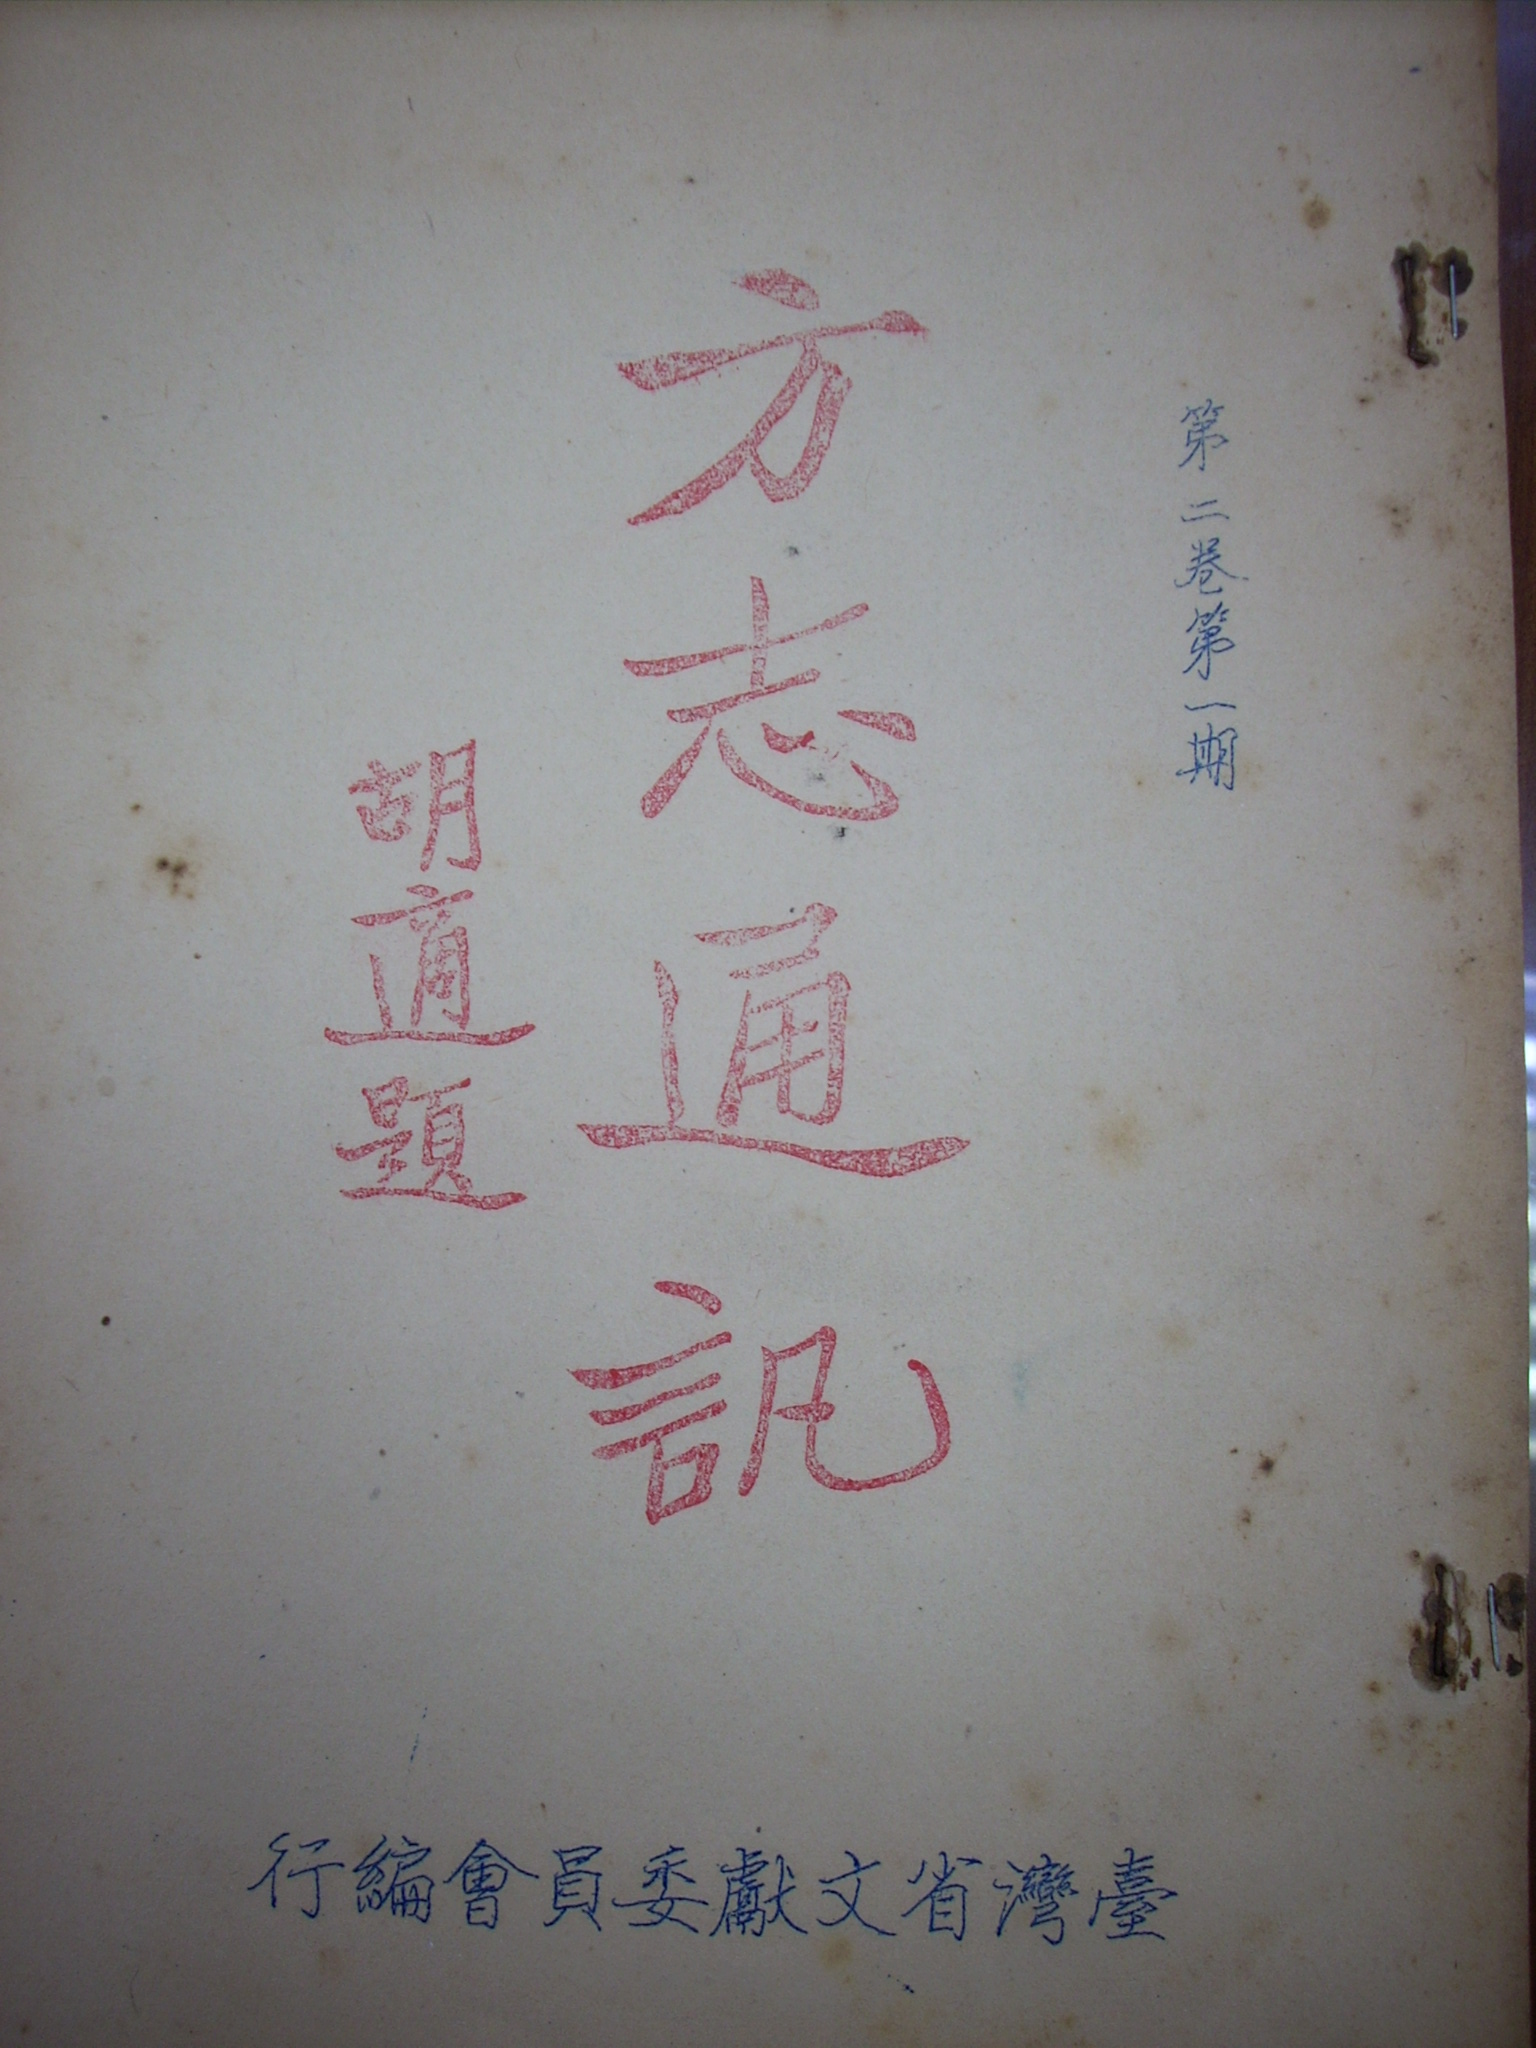 第二卷第一期
方志通訊
胡適題
臺灣省文獻委員會編行